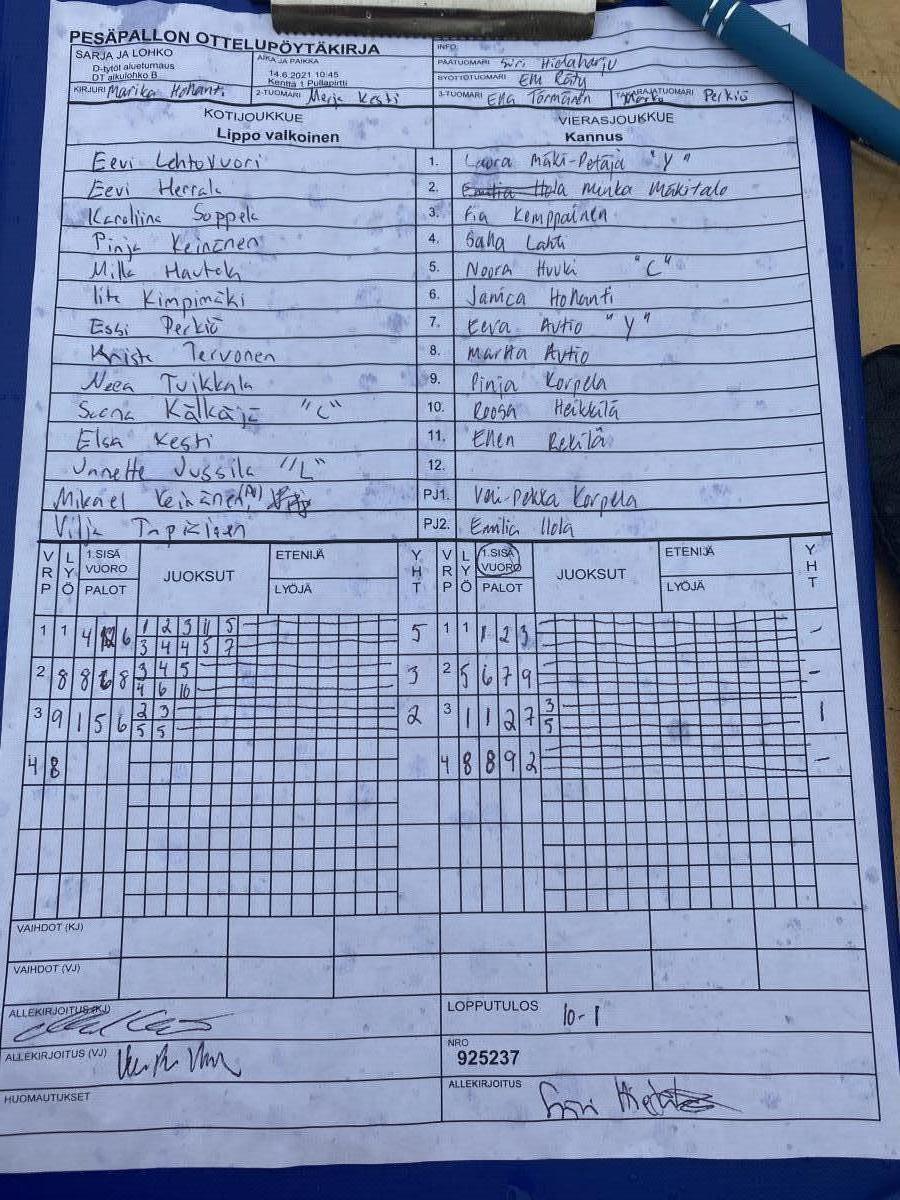 PESÄPALLON OTTELUPÖYTÄKIRJA
SARJA JA LOHKO
D-tytöt alueturnaus
DT alkulohko B
AIKA JA PAIKKA
14.6.2021 10:45
Kenttä 1 Pullapirtti
INFO
PÄÄTUOMARI Siiri Hietaharju
SYÖTTÖTUOMARI Elli Räty
KIRJURI Marika Hohanti
2-TUOMARI Merja Kesti
3-TUOMARI Ella Törmänen
TAKARAJATUOMARI Marko Perkiö
KOTIJOUKKUE
Lippo valkoinen
VIERASJOUKKUE
Kannus
Eevi Lehtovuori 1. Laura Mäki-Petäjä "Y"
Eevi Herrala 2. Emilia Ilola Minka Mäkitalo
Karoliina Soppela 3. Fia Kemppainen
Pinja Keinänen 4. Salla Lahti
Milla Hautala 5. Noora Huuki "C"
Iita Kimpimäki 6. Janica Hohanti
Essi Perkiö 7. Eeva Autio "Y"
Krista Tervonen 8. Martta Autio
Neea Tuikkala 9. Pinja Korpela
Suena Kälkäjä "C" 10. Roosa Heikkilä
Elsa Kesti 11. Ellen Rekilä
Jannette Jussila "L" 12.
Mikael Keinänen PJ1. Veli-Pekka Korpela
Vilja PJ2. Emilia Ilola
VRP LYÖ 1.SISÄ VUORO PALOT JUOKSUT ETENIJÄ LYÖJÄ YHT VRP LYÖ 1.SISÄ VUORO PALOT JUOKSUT ETENIJÄ LYÖJÄ YHT
1 1 4 6 1 2 3 11 5 5 1 1 1 2 3 -
3 4 4 5 7
2 8 8 8 3 4 5 3 2 5 6 7 9 -
4 6 10
3 9 1 5 6 2 3 2 3 1 1 2 7 3 1
5 5 5
4 8 4 8 8 9 2 -
VAIHDOT (KJ)
VAIHDOT (VJ)
ALLEKIRJOITUS (KJ)
LOPPUTULOS 10-1
ALLEKIRJOITUS (VJ)
NRO
925237
HUOMAUTUKSET
ALLEKIRJOITUS